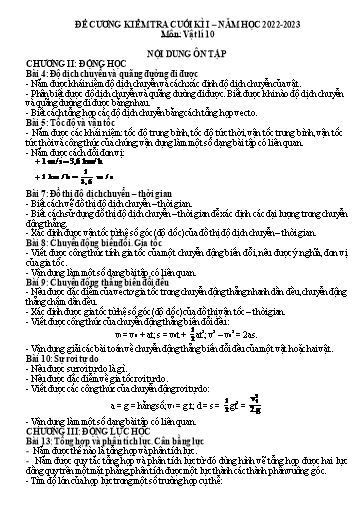 ĐỀ CƯƠNG KIỂM TRA CUỐI KÌ I – NĂM HỌC 2022-2023
Môn: Vật lí 10
NỘI DUNG ÔN TẬP
CHƯƠNG II: ĐỘNG HỌC
Bài 4: Độ dịch chuyển và quãng đường đi được
- Nắm được khái niệm độ dịch chuyển và cách xác định độ dịch chuyển của vật.
- Phân biệt được độ dịch chuyển và quãng đường đi được. Biết được khi nào độ dịch chuyển
và quãng đường đi được bằng nhau.
- Biết cách tổng hợp các độ dịch chuyển bằng cách tổng hợp vecto.
Bài 5: Tốc độ và vận tốc
- Nắm được các khái niệm: tốc độ trung bình, tốc độ tức thời, vận tốc trung bình, vận tốc
tức thời và công thức của chúng; vận dụng làm một số dạng bài tập có liên quan.
- Nắm được cách đổi đơn vị:
+ 1 m/s = 3,6 km/h
+ 1 km/h = 1/3,6 m/s
Bài 7: Đồ thị độ dịch chuyển – thời gian
- Biết cách vẽ đồ thị độ dịch chuyển – thời gian.
- Biết cách sử dụng đồ thị độ dịch chuyển – thời gian để xác định các đại lượng trong chuyển
động thẳng.
- Xác định được vận tốc từ hệ số góc (độ dốc) của đồ thị độ dịch chuyển – thời gian.
Bài 8: Chuyển động biến đổi. Gia tốc
- Viết được công thức tính gia tốc của một chuyển động biến đổi, nêu được ý nghĩa, đơn vị
của gia tốc.
- Vận dụng làm một số dạng bài tập có liên quan.
Bài 9: Chuyển động thẳng biến đổi đều
- Nêu được đặc điểm của vecto gia tốc trong chuyển động thẳng nhanh dần đều, chuyển động
thẳng chậm dần đều.
- Xác định được gia tốc từ hệ số góc (độ dốc) của đồ thị vận tốc – thời gian.
- Viết được công thức của chuyển động thẳng biến đổi đều:
v = v₀ + at; s = v₀t + 1/2 at²; v² – v₀² = 2as.
- Vận dụng giải các bài toán về chuyển động thẳng biến đổi đều của một vật hoặc hai vật.
Bài 10: Sự rơi tự do
- Nêu được sự rơi tự do là gì.
- Nêu được đặc điểm về gia tốc rơi tự do.
- Viết được các công thức của chuyển động rơi tự do:
a = g = hằng số; vₜ = gt; d = s = 1/2 gt² = vₜ²/2g
- Vận dụng làm một số dạng bài có liên quan.
CHƯƠNG III: ĐỘNG LỰC HỌC
Bài 13: Tổng hợp và phân tích lực. Cân bằng lực
- Nắm được thế nào là tổng hợp và phân tích lực.
- Nắm được quy tắc tổng hợp và phân tích lực từ đó dùng hình vẽ tổng hợp được hai lực
đồng quy trên một mặt phẳng, phân tích được một lực thành các thành phần vuông góc.
- Tìm độ lớn của hợp lực trong một số trường hợp cụ thể: